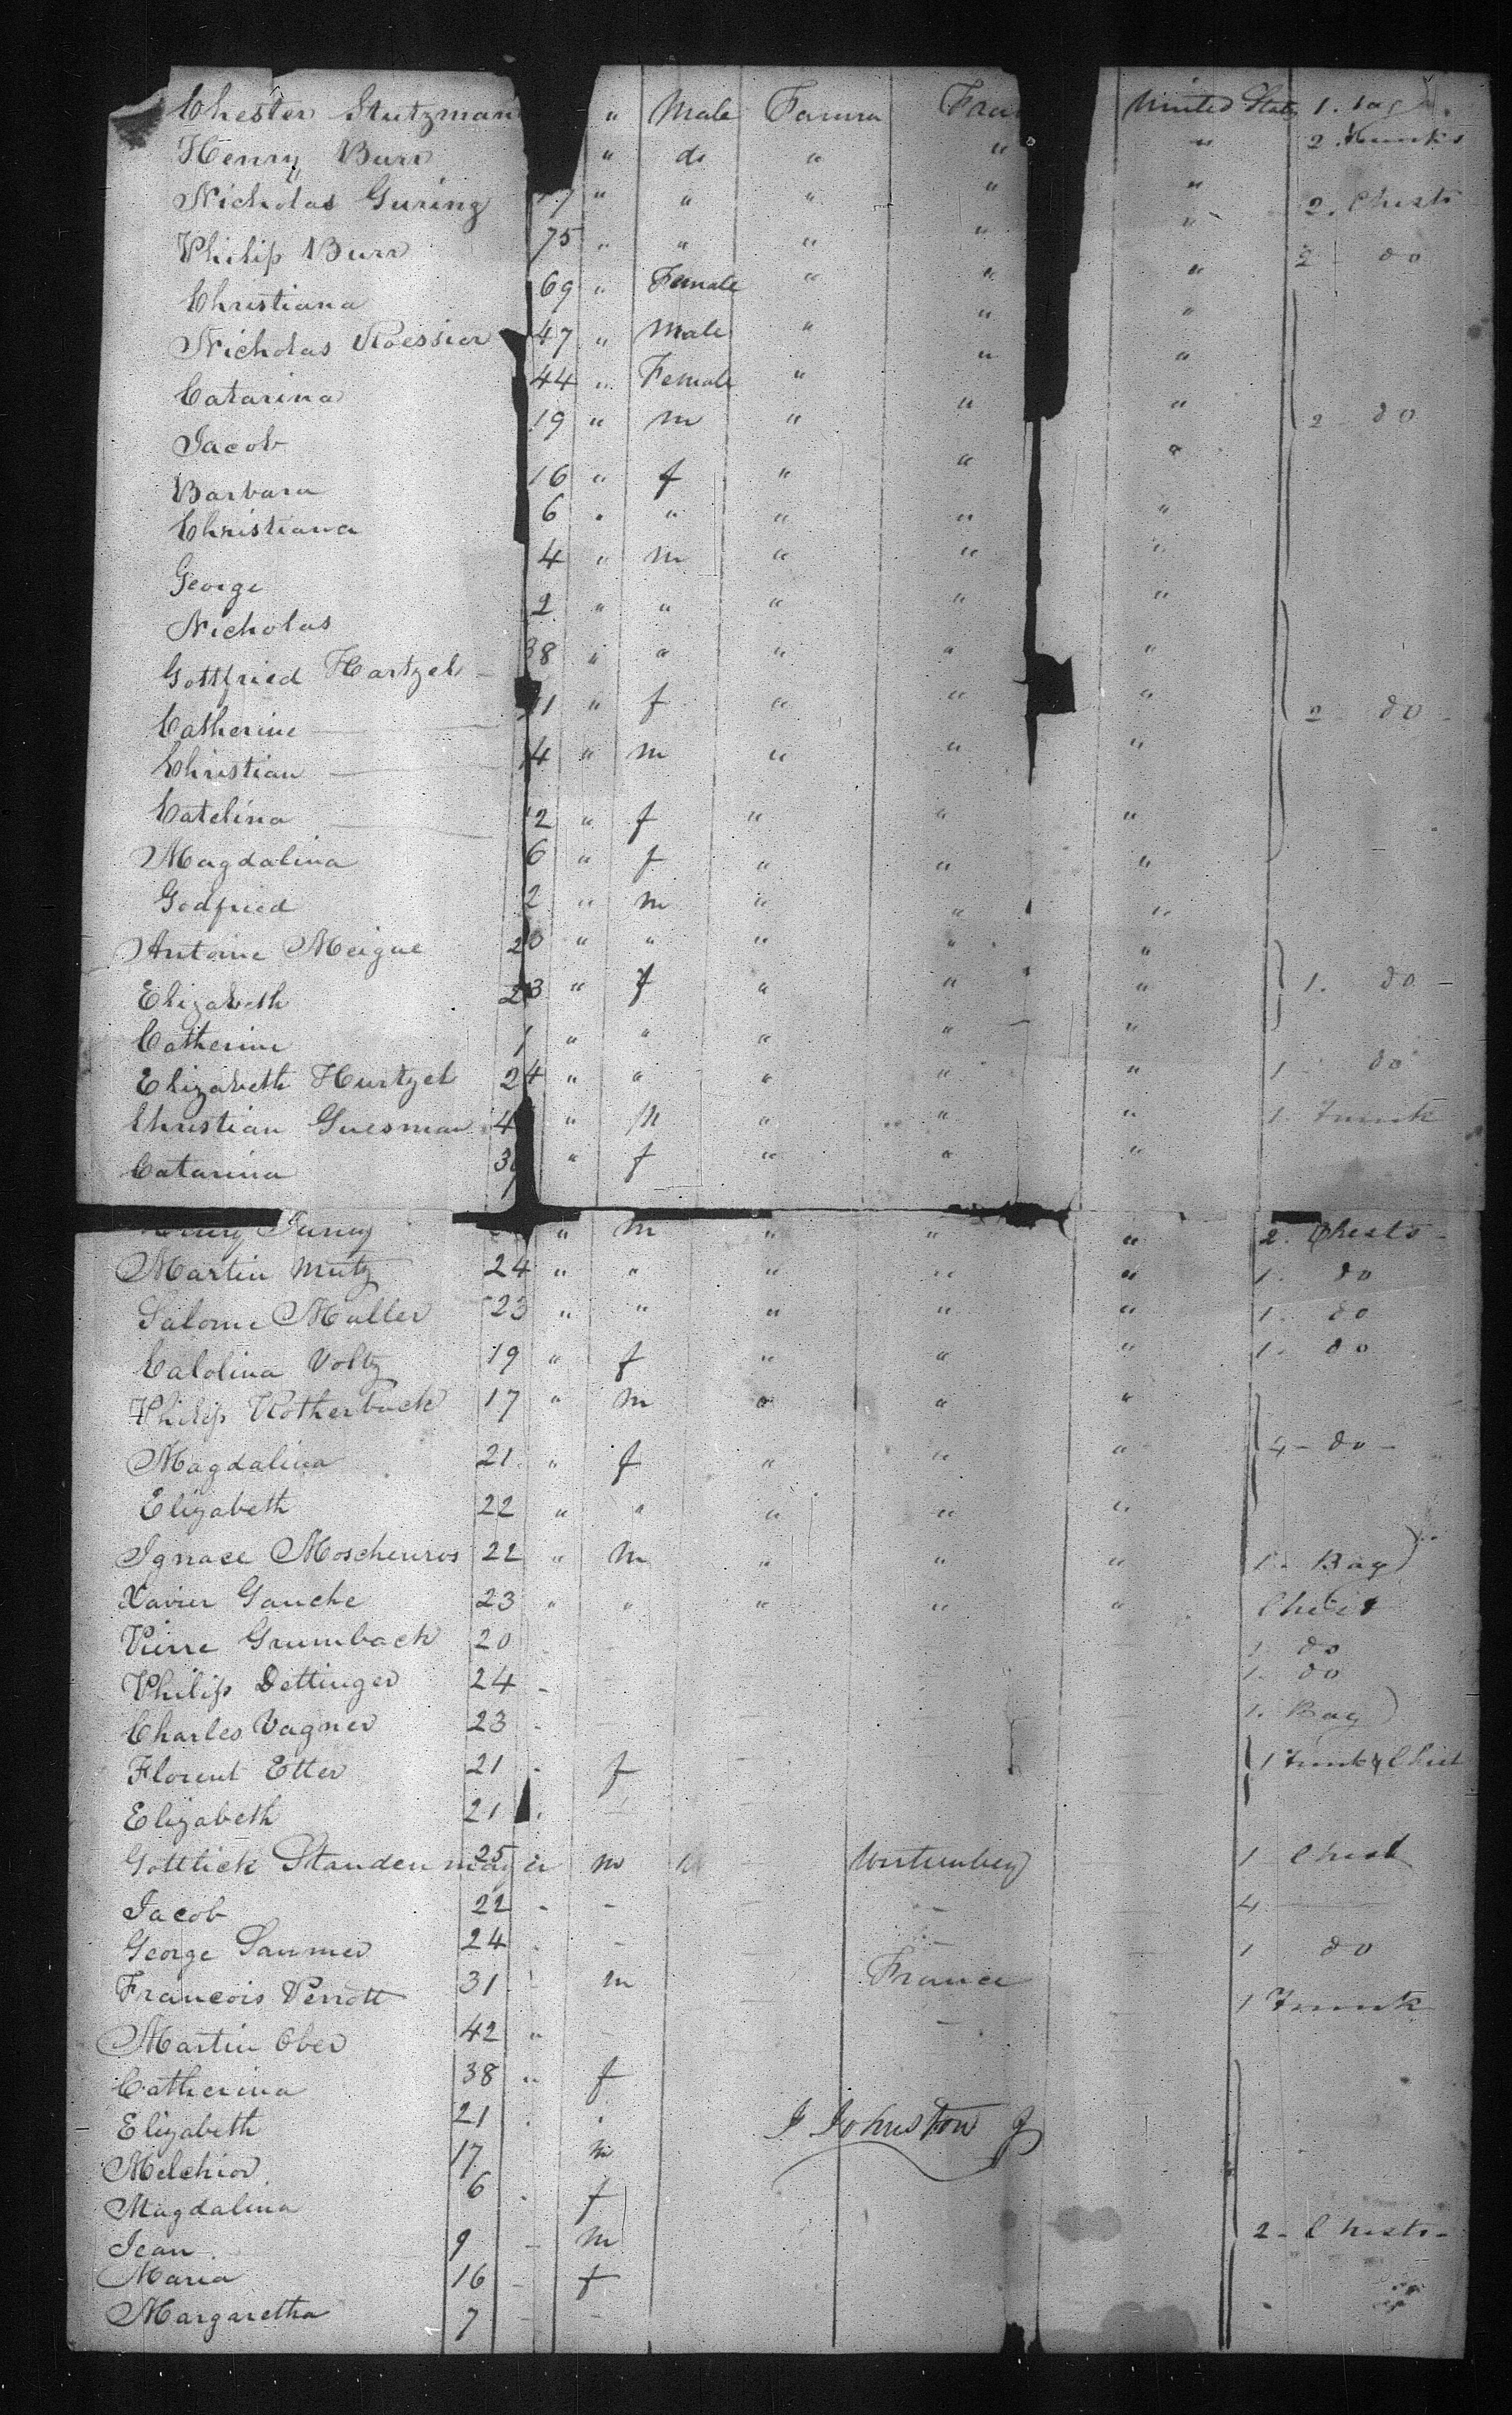 Chester Stutzman " Male Farmer Fra United States 1. Bag
Henry Burr " do " " " 2 Trunks
Nicholas Guring 7 " " " " " 2. Chests
Philip Burr 75 " " " " " 2 - do
Christiana 69 " Female " " "
Nicholas Roessier 47 " Male " " "
Catarina 44 " Female " " "
Jacob 19 " m " " " 2 - do
Barbara 16 " f " " "
Christiana 6 " " " " "
George 4 " m " " "
Nicholas 2 " " " " "
Gottfried Hartzel 38 " " " " "
Catherine 1 " f " " " 2 - do -
Christian 4 " m " " "
Catelina 12 " f " " "
Magdalina 6 " f " " "
Godfried 2 " m " " "
Antoine Meigue 20 " " " " "
Elizabeth 23 " f " " " 1. do -
Catherine 1 " " " " "
Elizabeth Hurtzel 24 " " " " " 1 - do
Christian Guesman 4 " m " " " 1. Trunk
Catarina 3 " f " " "
" m " " " 2. Chests -
Martin Mutz 24 " " " " " 1. do
Salome Muller 23 " " " " " 1. do
Calolina Voltz 19 " f " " " 1. do
Philip Rotherback 17 " m " " "
Magdalina 21 " f " " " 4 - do -
Elizabeth 22 " " " " "
Ignace Moschenros 22 " m " " " 1. Bag
Xavier Gauche 23 " " " " " Chest
Pierre Grumback 20 - 1. do
Philip Dettinger 24 - 1. do
Charles Vagner 23 - 1. Bag
Florent Etter 21 - f - 1 Trunk & Chest
Elizabeth 21 -
Gottlieb Staudenmayer 25 m Wurtemberg 1 Chest
Jacob 22 - - - - 4
George Sanmer 24 - - - - 1 do
Francois Perrott 31 - m France 1 Trunk
Martin Ober 42 " - -
Catherina 38 " f
Elizabeth 21 " "
J Johnston Jr
Melchior 17 m
Magdalina 6 - f
Jean 9 - m 2 - Chests -
Maria 16 - f
Margaretha 7 - -